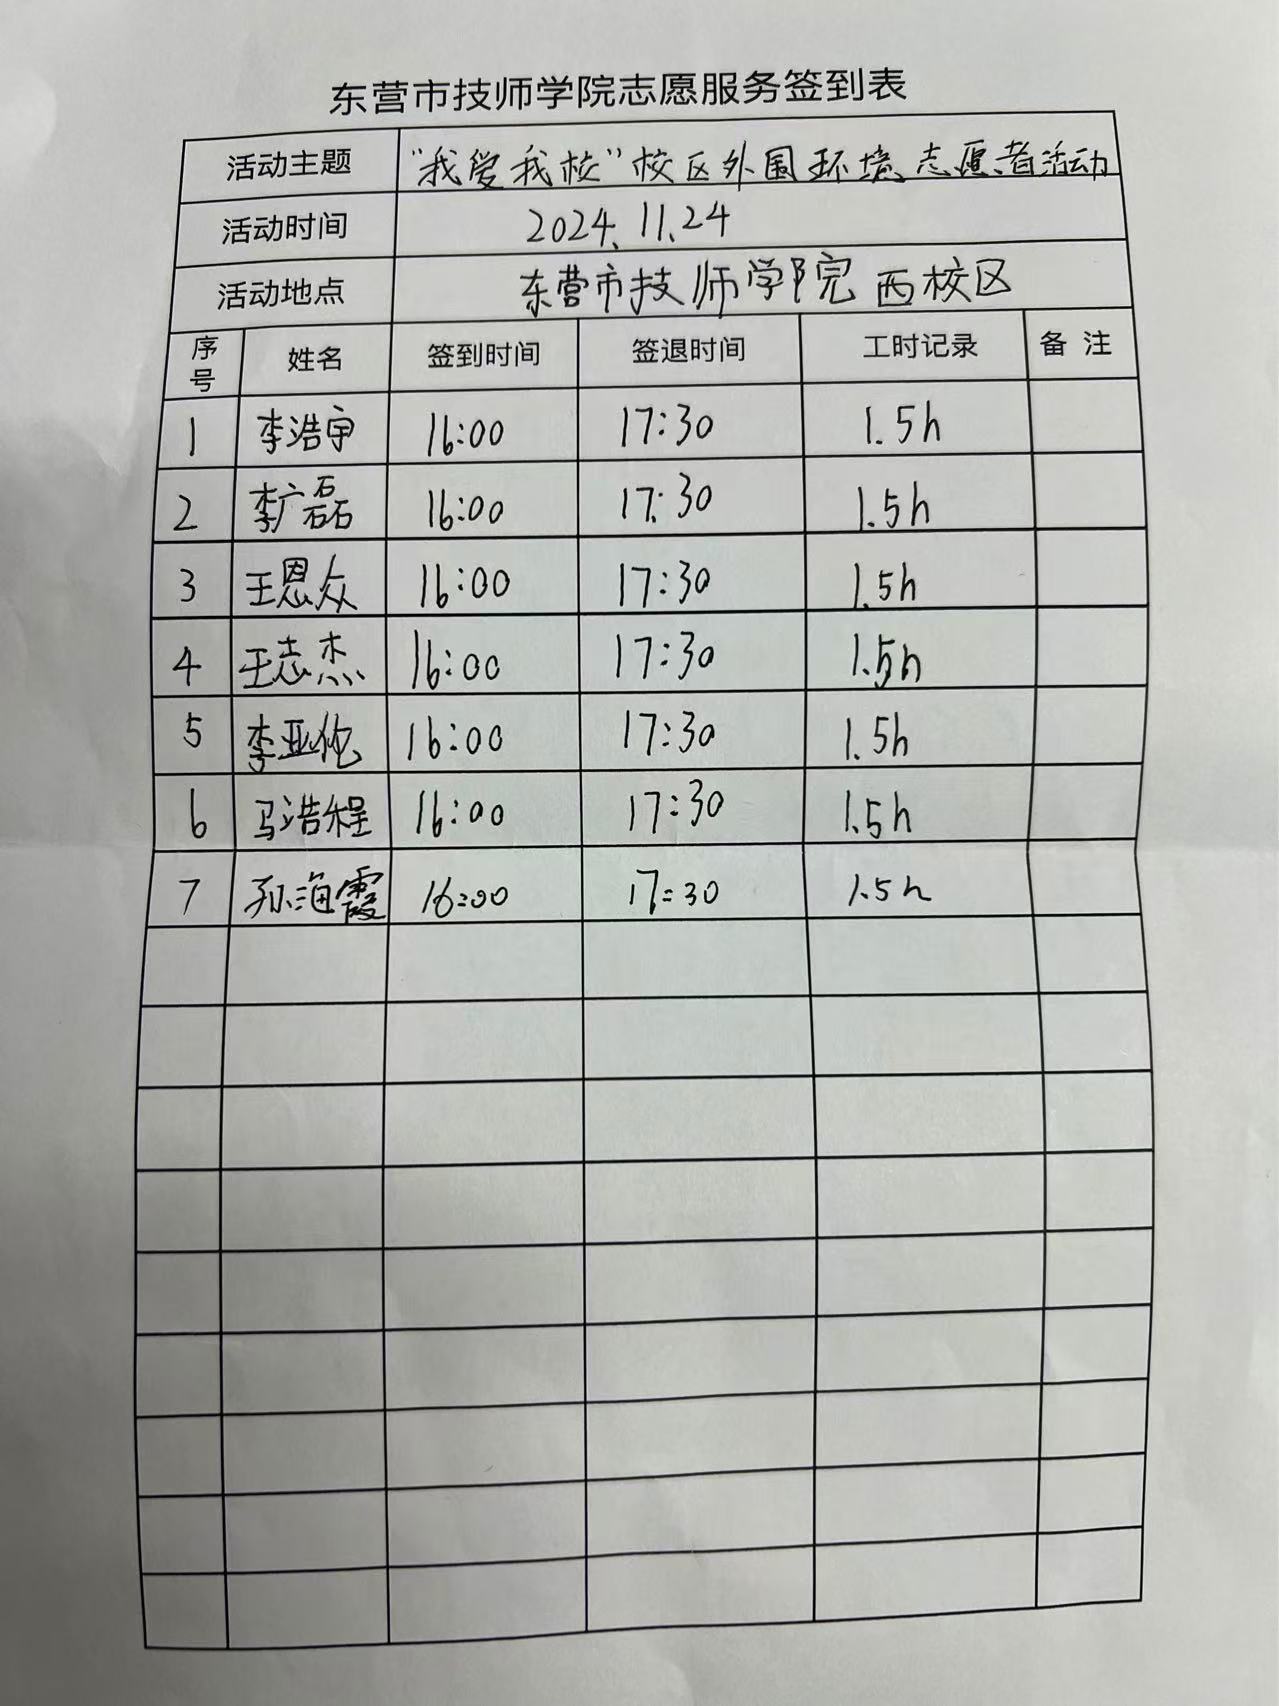 东营市技师学院志愿服务签到表
活动主题 “我爱我校”校区外围环境志愿者活动
活动时间 2024.11.24
活动地点 东营市技师学院西校区
序号 姓名 签到时间 签退时间 工时记录 备注
1 李浩宇 16:00 17:30 1.5h
2 李广磊 16:00 17:30 1.5h
3 王恩众 16:00 17:30 1.5h
4 王志杰 16:00 17:30 1.5h
5 李亚伦 16:00 17:30 1.5h
6 马浩程 16:00 17:30 1.5h
7 孙海霞 16:00 17:30 1.5h